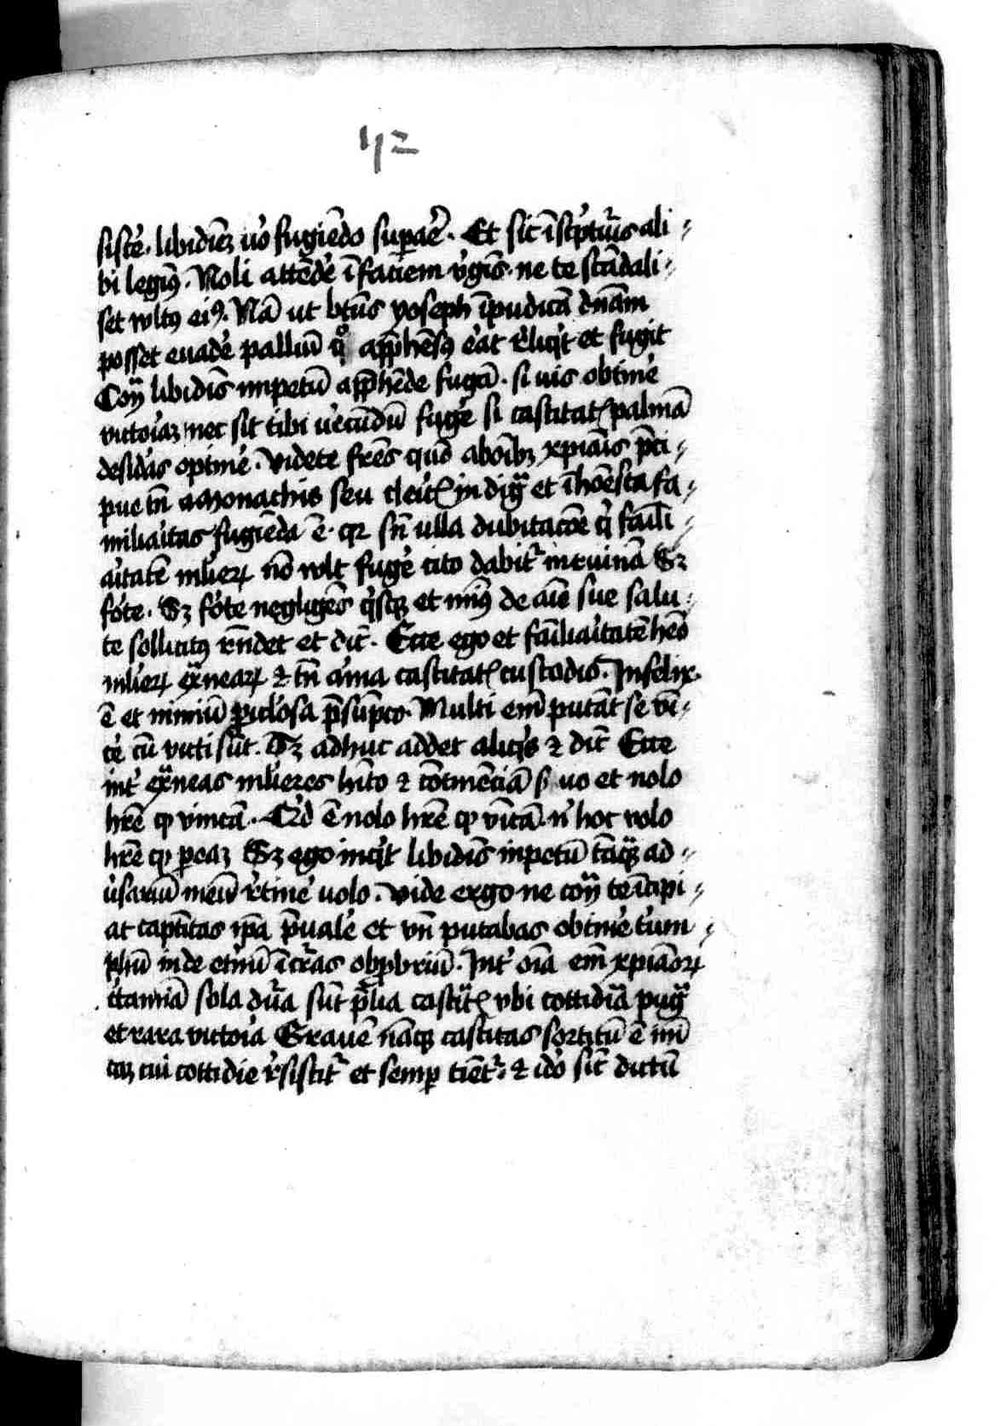 192
sistē. libidinē u͛o fugiēdo supaē. Et sic ī sc͛pturis ali-
bi legim͛9. Noli attēde͛ ī faciem v͛ginis. ne te scādali-
set vult9 ei9. Nā ut bt̄us yoseph īpudicā dn̄am
posset euade͛ palliū qͦ app̄hēs9 e͛at r͛liqt et fugit
Cont͛ libidīs impetū app̄hēde fugā. si uis obtine͛
victoiaꝫ nec sit tibi u͛ecūdū fuge͛ si castitatꝭ palmā
desid͛as optine͛. Videte fr̄es quō ab oībꝫ xp̄ianis p̄ci-
pue tn̄ a monachis seu cl͛icꝭ indigᷓ et īhoēsta fa-
miliaritas fugiēda ē. qr sn̄ ulla dubitacōe q̇ fāili-
aritatē mlieꝝ nō vult fuge͛ cito dabitr in ruinā Sꝫ
fo͛te. Sꝫ fo͛te negligēs qisqꝫ et min9 de aīe sue salu-
te sollicit9 r̄ndet et dic̄. Ecce ego et fāiliaritatē heō
mlieꝝ ext͛neaꝝ ⁊ tn̄ aīma castitatꝭ custodio. Infelix
ē et nimiū p̲iclosa p̄sūpco. Multi em̄ putāt se vī-
ce͛ cū victi sūt. Sꝫ adhuc addet aliqis ⁊ dic̄ Ecce
int͛ ext͛neas mlieres hīto ⁊ cōtinēciā s͛uo et nolo
hr̄e qꝫ vincā. Qid ē nolo hr̄e qꝫ vīcā. n͛ hoc volo
hr̄e qꝫ p̲eaꝫ Sꝫ ego inqit libidīs inpetū tāqᷓꝫ ad-
u͛sariū meū r͛tine͛ uolo. Vide ergo ne cont͛ te īcipi-
at captīitas ip̄a p̄uale͛ et vn̄ putabas obtine͛ t͛ium-
phū inde et͛nū īcr̄as obp̲briū. Int͛ oīa em̄ xp̄ianoꝝ
sola dura sūt p̄lia castitꝭ vbi cottidiā pugᷓ
et rara victoia Grauē nāqꝫ castitas sortitū ē inī
cuꝫ cui cottidie r͛sistitr et semp̲ timetr. ⁊ ido͛ sic̄ dictū